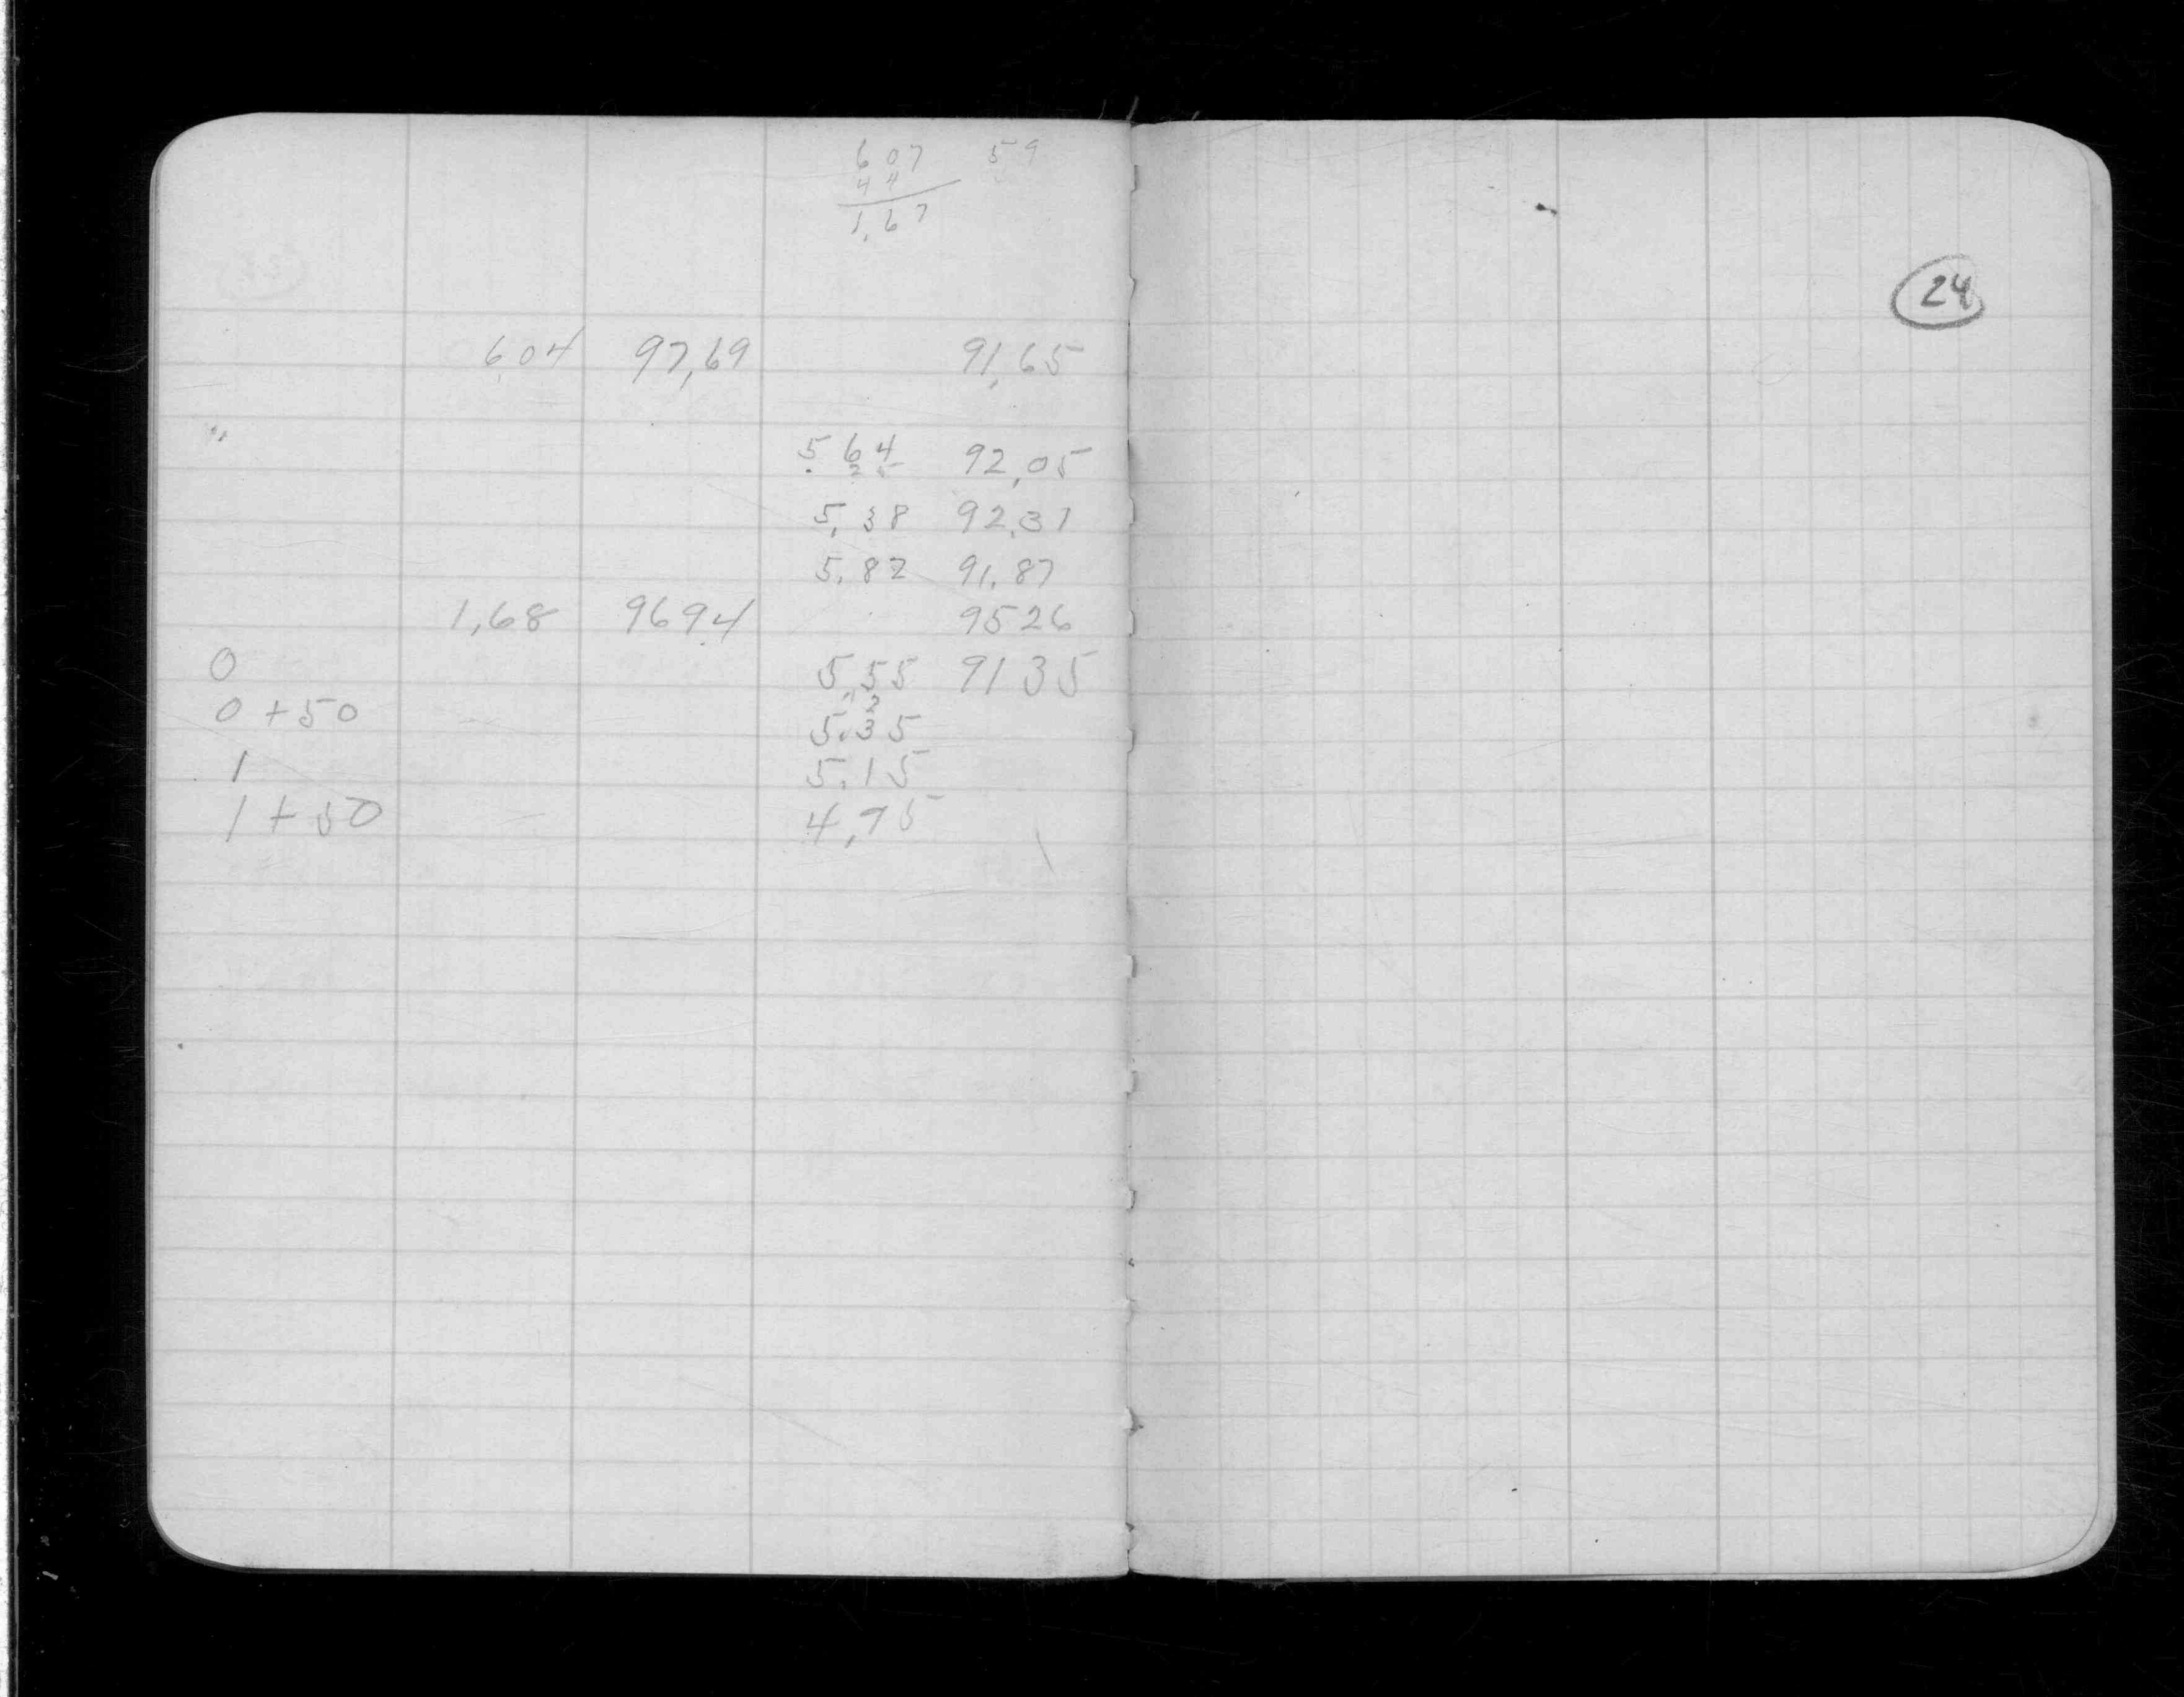 607 59
44
1.67
6.04 97.69 91.65
5.64 92.05
2 5
5.38 92.31
5.82 91.87
1.68 9694 9526
0 5.55 9135
2
0+50 5.35
1 5.15
1+50 4.75
24